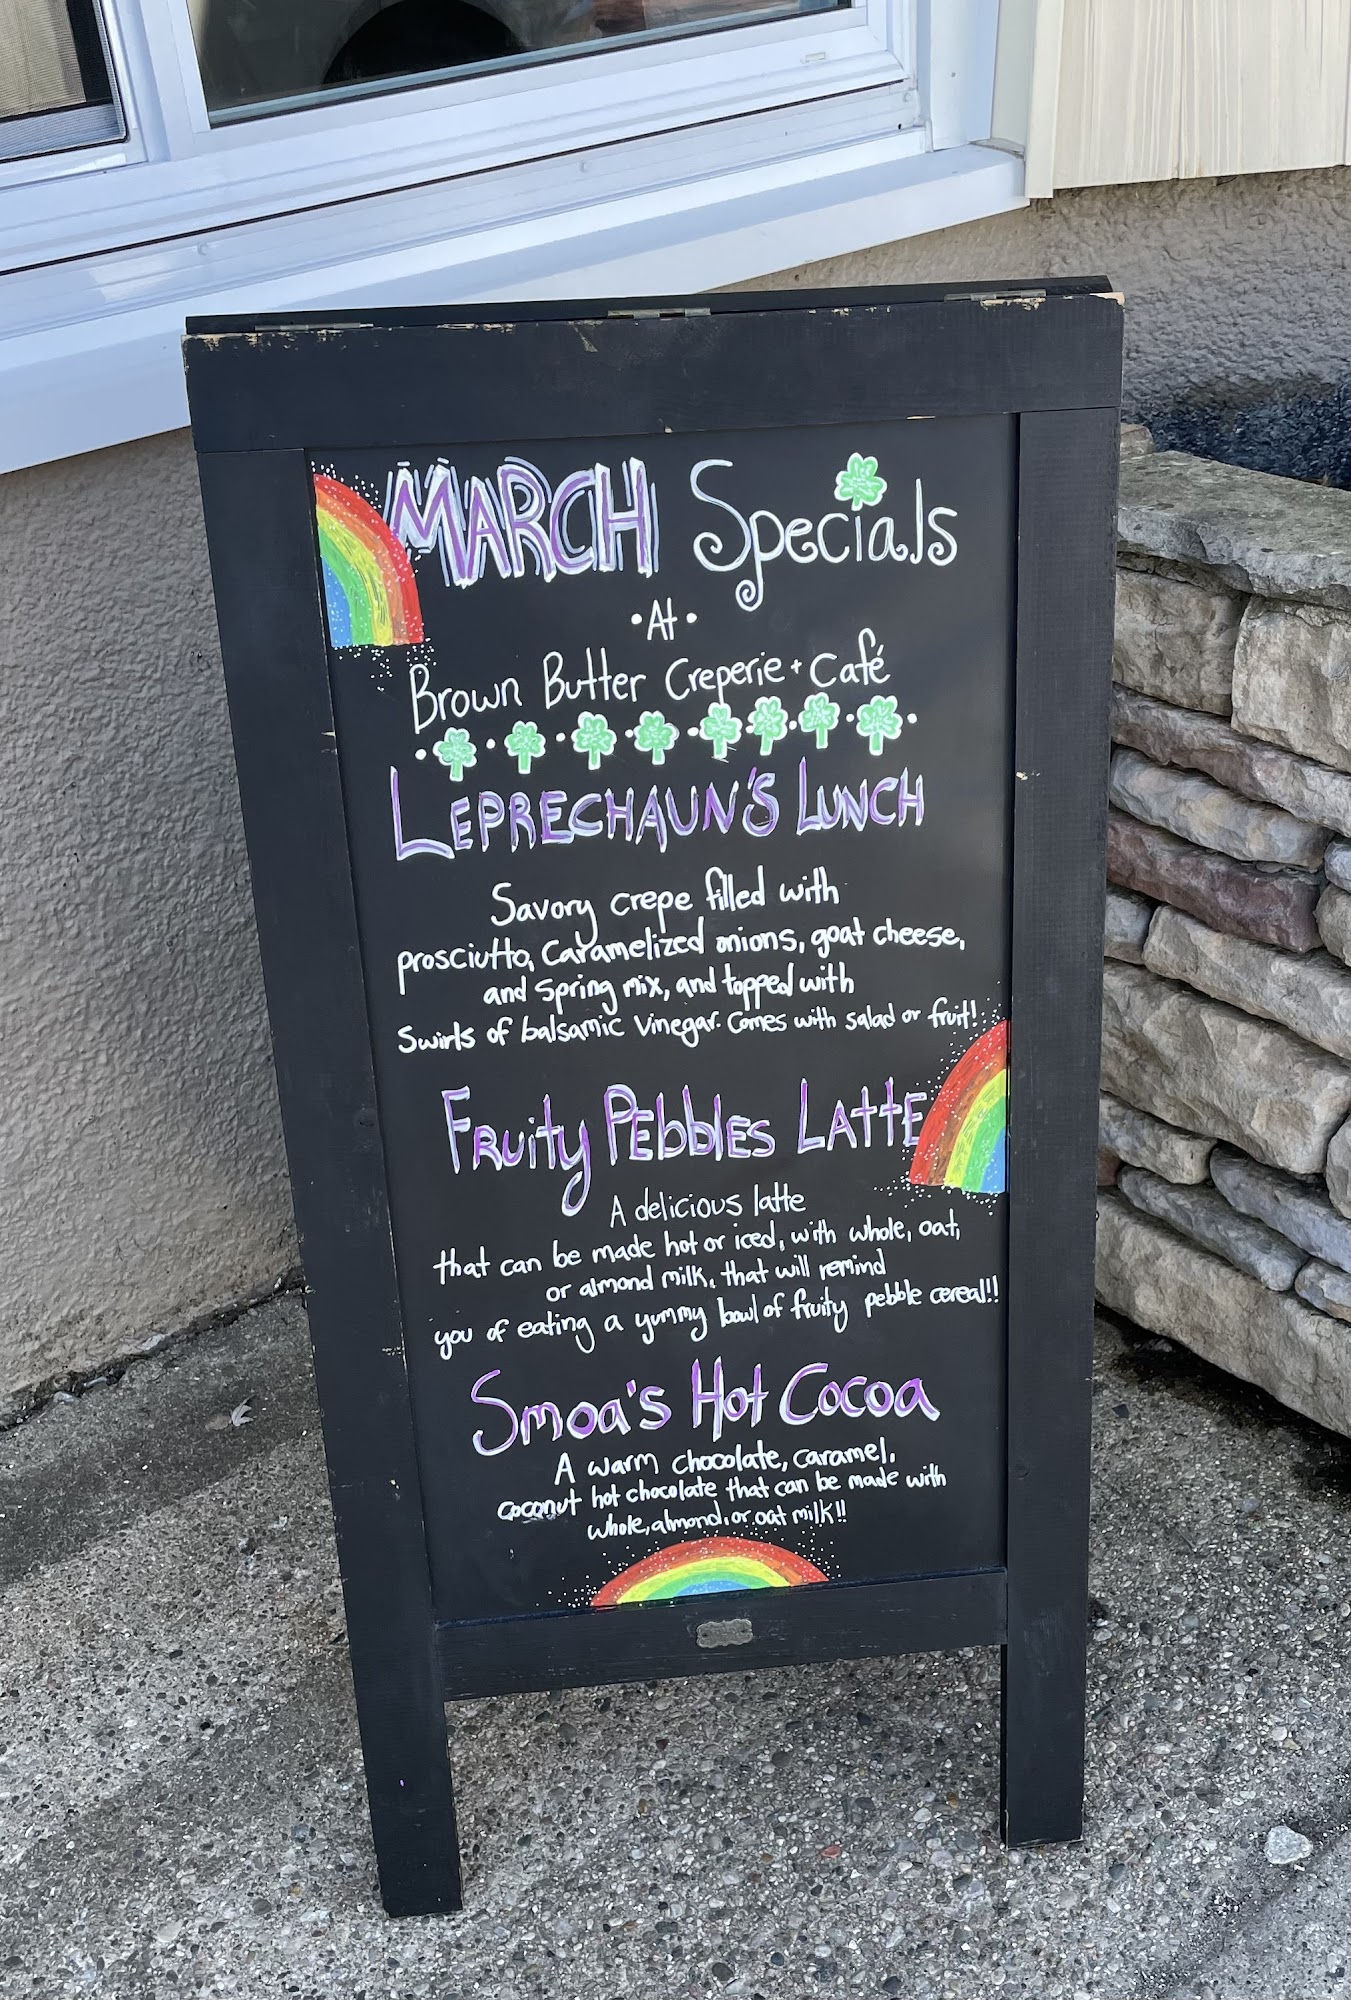 MARCH Specials
•At•
Brown Butter Creperie + Café
LEPRECHAUN'S LUNCH
Savory crepe filled with
prosciutto, caramelized onions, goat cheese,
and spring mix, and topped with
swirls of balsamic vinegar. Comes with salad or fruit!
FRuity PEbblES LATTE
A delicious latte
that can be made hot or iced, with whole, oat,
or almond milk, that will remind
you of eating a yummy bowl of fruity pebble cereal!!
Smoa's Hot Cocoa
A warm chocolate, caramel,
coconut hot chocolate that can be made with
whole, almond, or oat milk!!